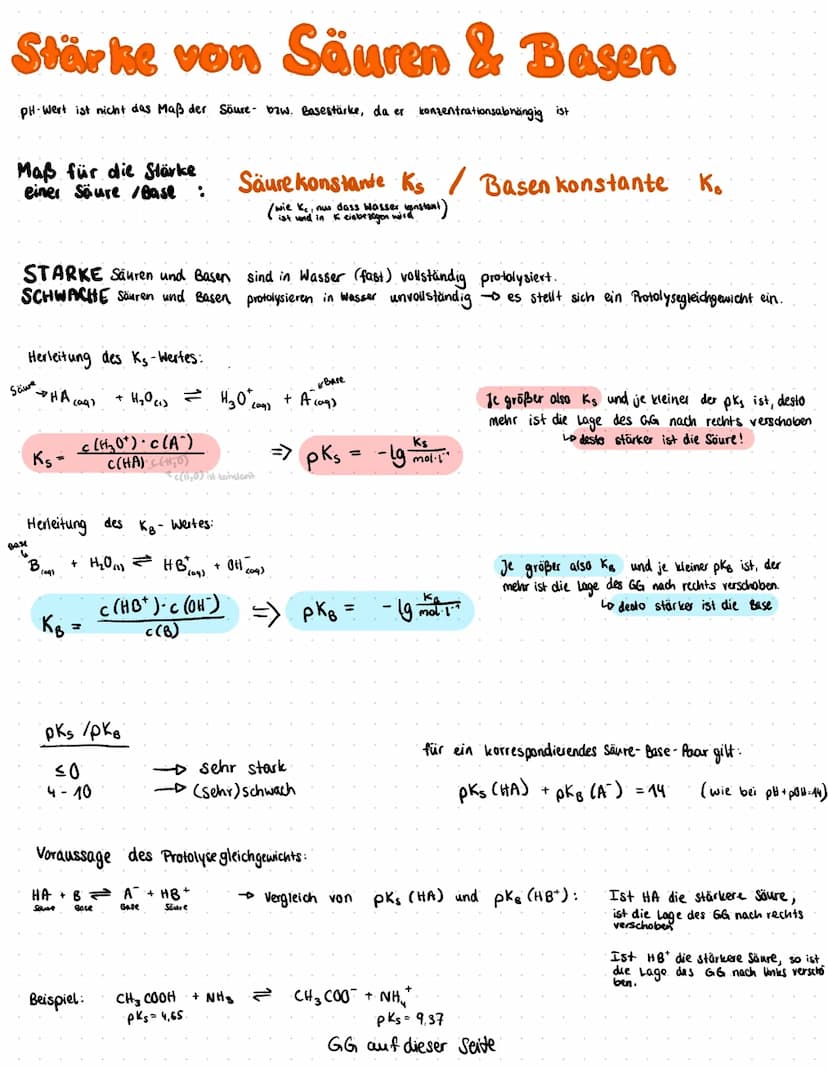 Stärke von Säuren & Basen
pH-Wert ist nicht das Maß der Säure- bzw. Basestärke, da er konzentrationsabhängig ist
Maß für die Stärke
einer Säure /Base :
Säurekonstante Ks / Basenkonstante KB
(wie Kc, nur dass Wasser konstant
ist und in K einbezogen wird)
STARKE Säuren und Basen sind in Wasser (fast) vollständig protolysiert.
SCHWACHE Säuren und Basen protolysieren in Wasser unvollständig → es stellt sich ein Protolysegleichgewicht ein.
Herleitung des Ks-Wertes:
Säure → HA(aq) + H₂O(l) ⇌ H₃O⁺(aq) + A⁻(aq) Base
Ks = c(H₃O⁺)·c(A⁻) / c(HA)·c(H₂O) => pKs = -lg Ks / mol·l⁻¹
c(H₂O) ist konstant
Je größer also Ks und je kleiner der pKs ist, desto
mehr ist die Lage des GG nach rechts verschoben
↳ desto stärker ist die Säure!
Herleitung des KB-Wertes:
Base
B(aq) + H₂O(l) ⇌ HB⁺(aq) + OH⁻(aq)
KB = c(HB⁺)·c(OH⁻) / c(B) => pKB = -lg KB / mol·l⁻¹
Je größer also KB und je kleiner pKB ist, der
mehr ist die Lage des GG nach rechts verschoben.
↳ desto stärker ist die Base
pKs /pKB
≤0 → sehr stark
4-10 → (sehr)schwach
für ein korrespondierendes Säure-Base-Paar gilt:
pKs (HA) + pKB (A⁻) = 14 (wie bei pH+pOH=14)
Voraussage des Protolysegleichgewichts:
HA + B ⇌ A⁻ + HB⁺ → Vergleich von pKs (HA) und pKs (HB⁺):
Säure Base Base Säure
Ist HA die stärkere Säure,
ist die Lage des GG nach rechts
verschoben
Ist HB⁺ die stärkere Säure, so ist
die Lage des GG nach links verscho
ben.
Beispiel: CH₃COOH + NH₃ ⇌ CH₃COO⁻ + NH₄⁺
pKs = 4,65 pKs = 9,37
GG auf dieser Seite